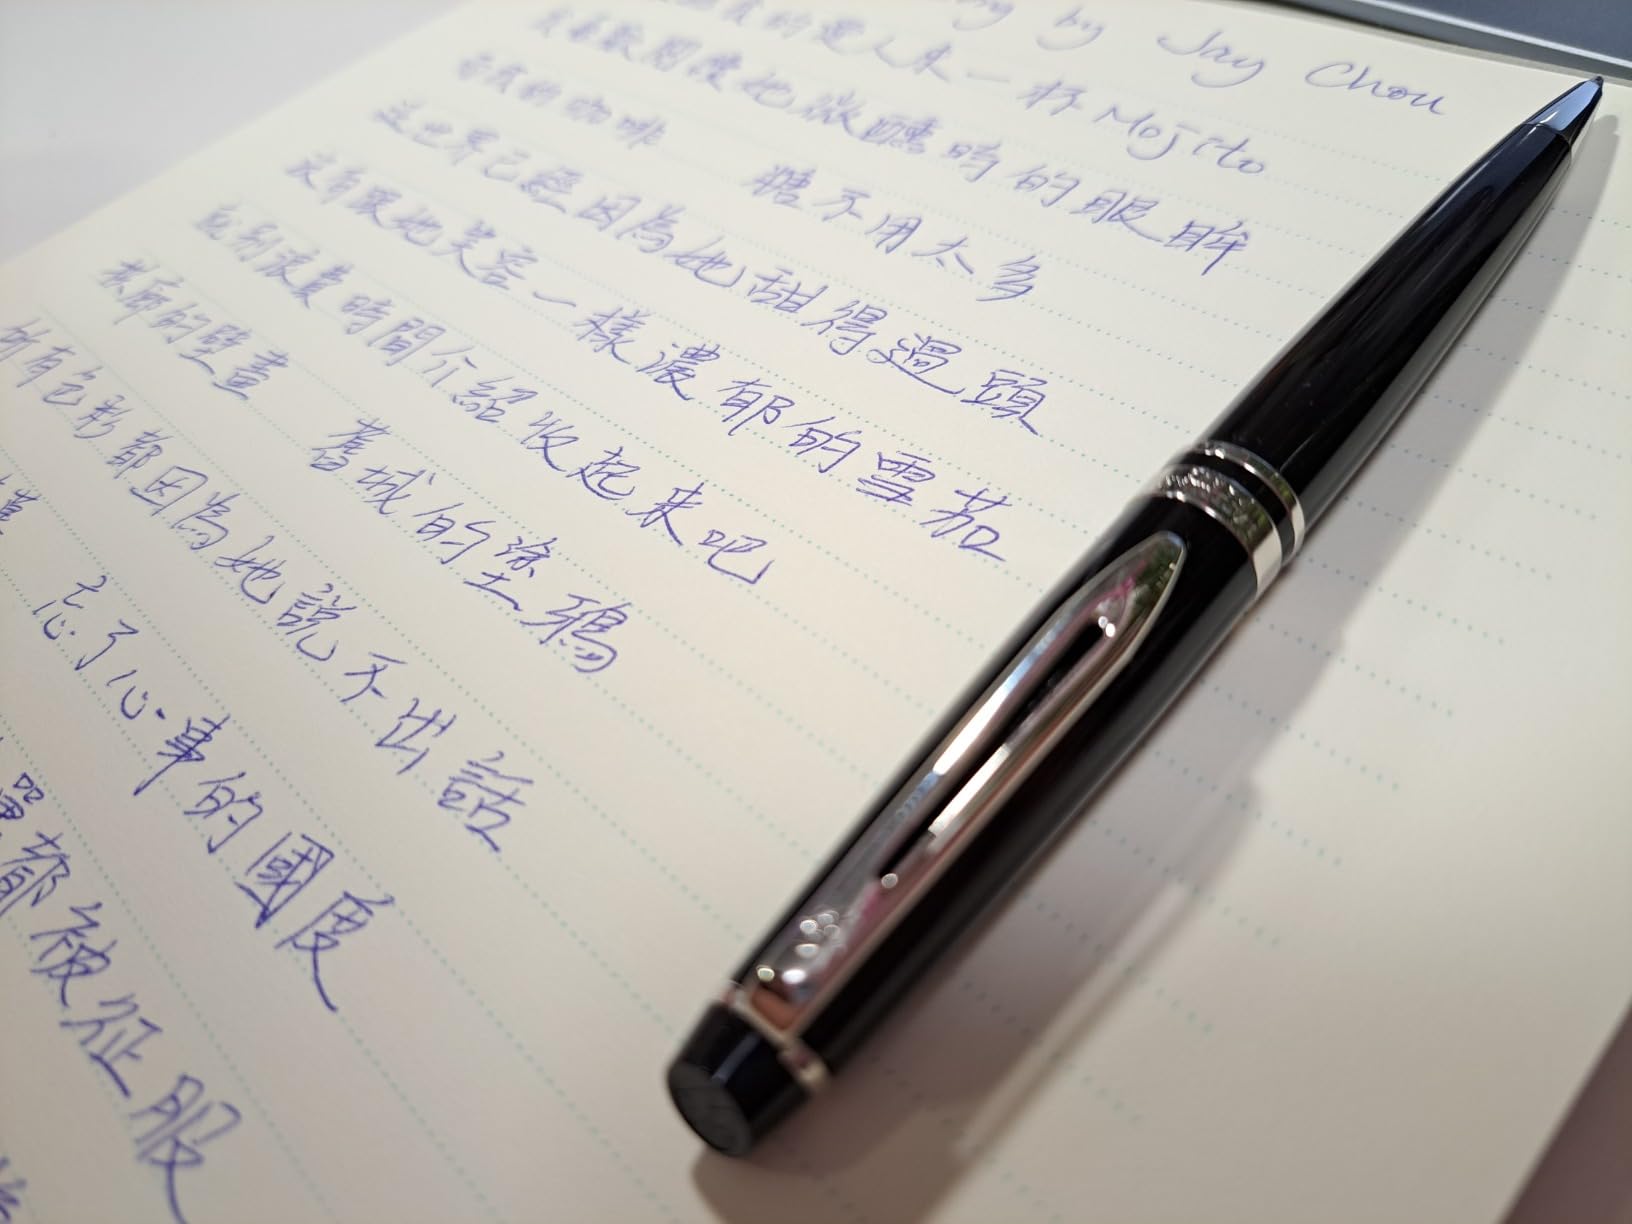 by Jay Chou
的愛人來一杯Mojito
我喜歡閱讀她微醺時的眼眸
而我的咖啡 糖不用太多
這世界已經因為她甜得過頭
沒有跟她笑容一樣濃郁的雪茄
就別浪費時間介紹收起來吧
拱廊的壁畫 舊城的塗鴉
所有色彩都因為她說不出話
忘了心事的國度
都被征服